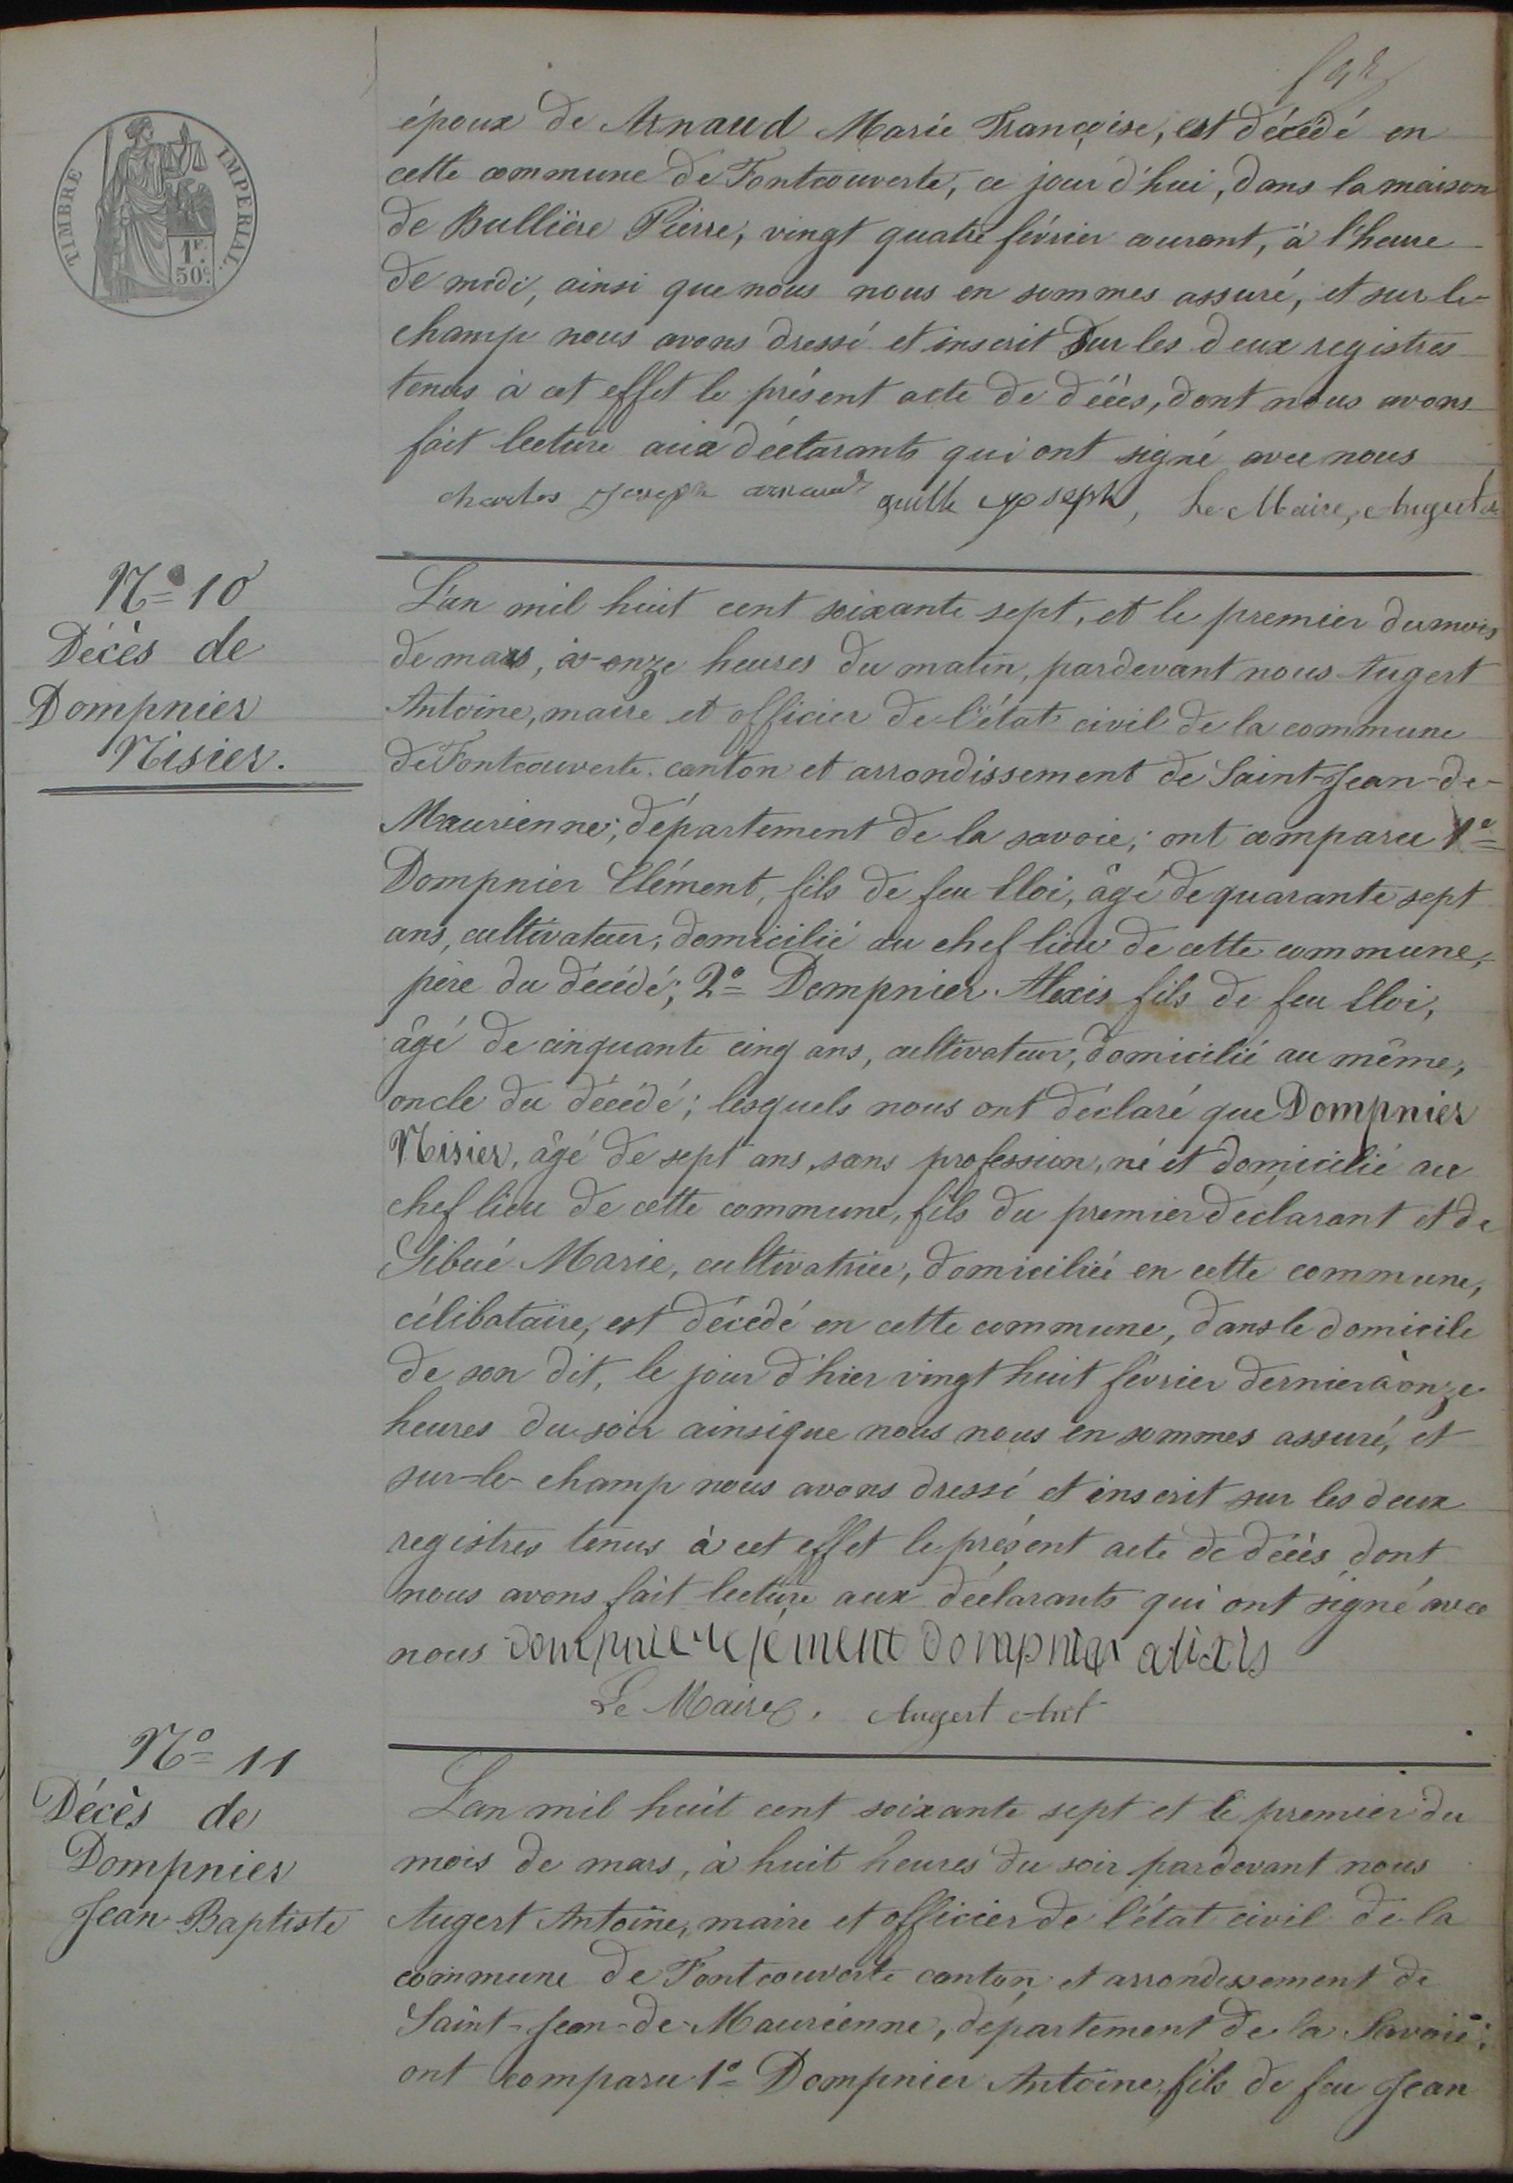 TIMBRE IMPERIAL.
1F.
50c.
époux de Arnaud Marie Françoise, est décédé en
cette commune de Fontcouverte, ce jour d'hui, dans la maison
de Bullière Pierre, vingt quatre février courant, à l'heure
de midi, ainsi que nous nous en sommes assuré, et sur le-
champ nous avons dressé et inscrit sur les deux registres
tenus à cet effet le présent acte de décès, dont nous avons
fait lecture aux déclarants qui ont signé avec nous
charles Joseph arnaud Joseph, Le Maire, Augert
N° 10
Décès de
Dompnier
Nisier.
L'an mil huit cent soixante sept, et le premier du mois
de mars, à onze heures du matin, pardevant nous Augert
Antoine, maire et officier de l'état civil de la commune
de Fontcouverte, canton et arrondissement de Saint-Jean-de-
Maurienne, département de la savoie; ont comparu 1°
Dompnier Clément, fils de feu Eloi, âgé de quarante sept
ans, cultivateur, domicilié au chef lieu de cette commune,
père du décédé; 2° Dompnier Alexis fils de feu Eloi,
âgé de cinquante cinq ans, cultivateur, domicilié au même,
oncle du décédé; lesquels nous ont déclaré que Dompnier
Nisier, âgé de sept ans, sans profession, né et domicilié au
chef lieu de cette commune, fils du premier declarant et de
Sibué Marie, cultivatrice, domiciliée en cette commune,
célibataire, est décédé en cette commune, dans le domicile
de son dit, le jour d'hier vingt huit février dernier à onze
heures du soir ainsi que nous nous en sommes assuré, et
sur-le-champ nous avons dressé et inscrit sur les deux
registres tenus à cet effet le présent acte de décès dont
nous avons fait lecture aux déclarants qui ont signé avec
nous dompnier clément dompnier alixis
Le Maire, Augert Ant
N° 11
Décès de
Dompnier
Jean-Baptiste
L'an mil huit cent soixante sept et le premier du
mois de mars, à huit heures du soir pardevant nous
Augert Antoine, maire et officier de l'état civil de la
commune de Fontcouverte canton et arrondissement de
Saint-Jean-de-Maurienne, département de la Savoie;
ont comparu 1° Dompnier Antoine, fils de feu Jean